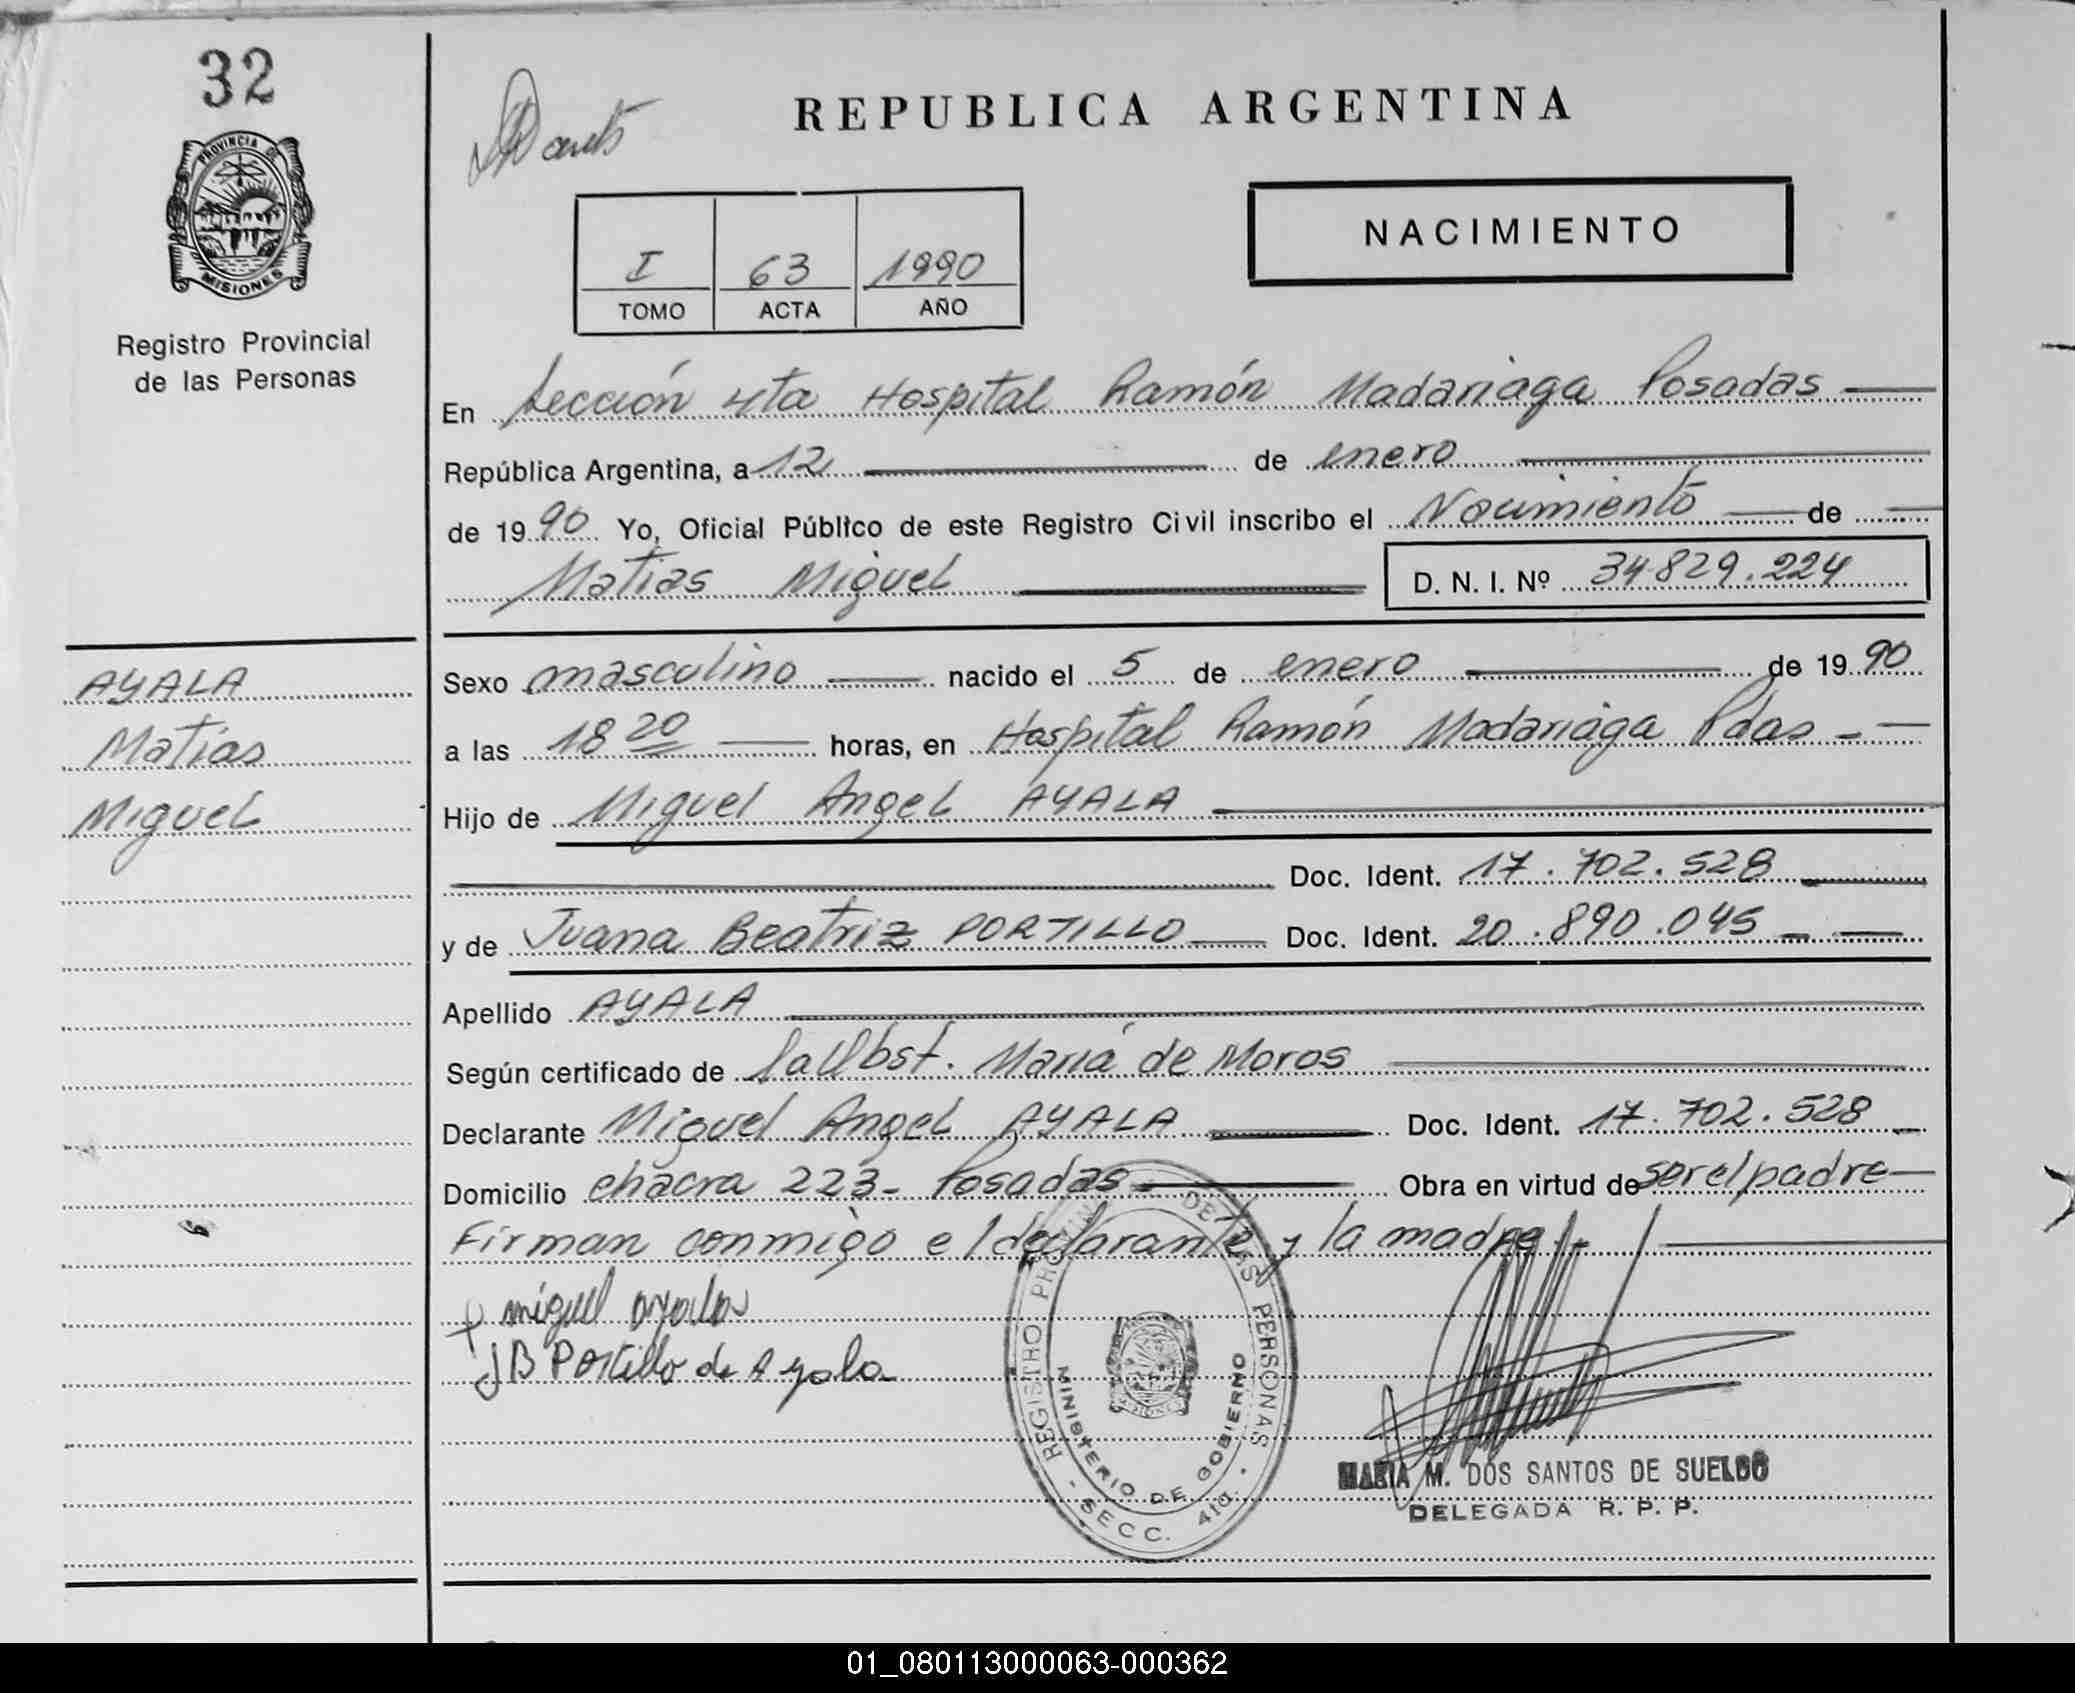 32
PROVINCIA DE
MISIONES
Registro Provincial
de las Personas
REPUBLICA ARGENTINA
I 63 1990
TOMO ACTA AÑO
NACIMIENTO
En Sección 4ta Hospital Ramón Madariaga Posadas
República Argentina, a 12 de enero
de 1990 Yo, Oficial Público de este Registro Civil inscribo el Nacimiento de
Matias Miguel D. N. I. Nº 34.829.224
AYALA
Matías
Miguel
Sexo masculino nacido el 5 de enero de 1990
a las 18 20 horas, en Hospital Ramón Madariaga Pdas
Hijo de Miguel Angel AYALA
Doc. Ident. 17.702.528
y de Juana Beatriz PORTILLO Doc. Ident. 20.890.045
Apellido AYALA
Según certificado de María de Moros
Declarante Miguel Angel AYALA Doc. Ident. 17.702.528
Domicilio chacra 223- Posadas Obra en virtud de ser el padre
Firman conmigo el declarante y la madre
miguel ayala
JB Portillo de Ayala
REGISTRO PROVIN DE LAS PERSONAS
MINISTERIO DE GOBIERNO
SECC. 4ta.
MARIA M. DOS SANTOS DE SUELDO
DELEGADA R. P. P.
01_080113000063-000362